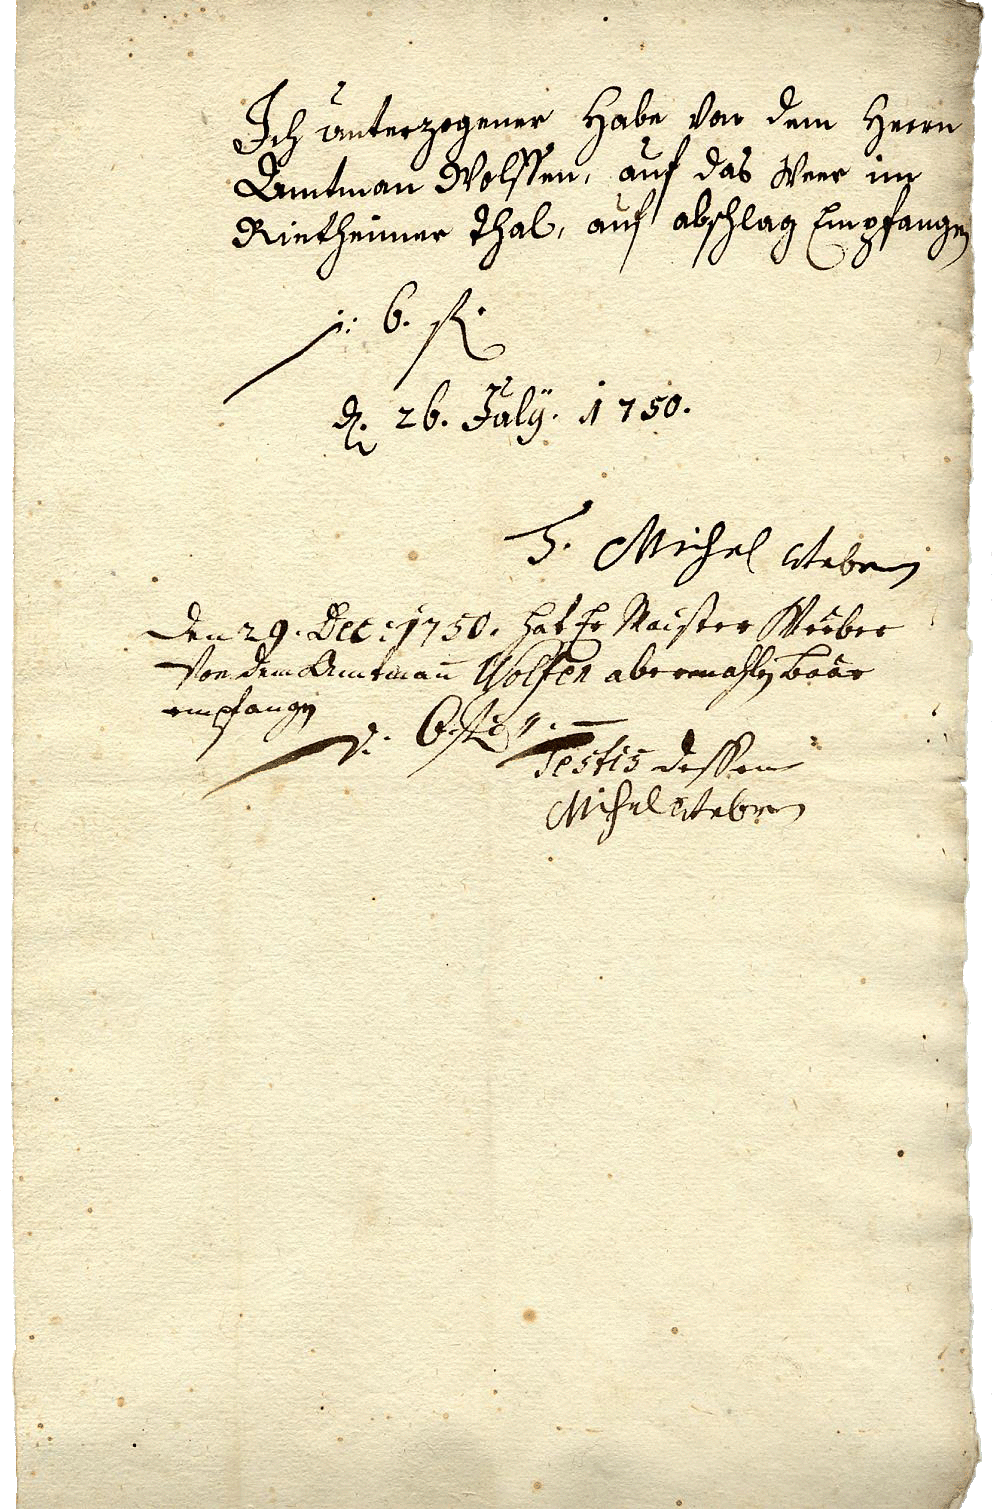 Ich unterzogener Habe von dem Herrn
Amtman Wolffen, auf das Weer im
Rietheimer Thal, auf abschlag Empfangen
j: 6. fl.
d. 26. July. 1750.
T. Michel Weber
Den 29. Dec: 1750. hat Er Maister Weeber
Von dem Amtmañ Wolfen abermahlen baar
empfangen
j: 6. fl.
Testis dessen
Michel Weber